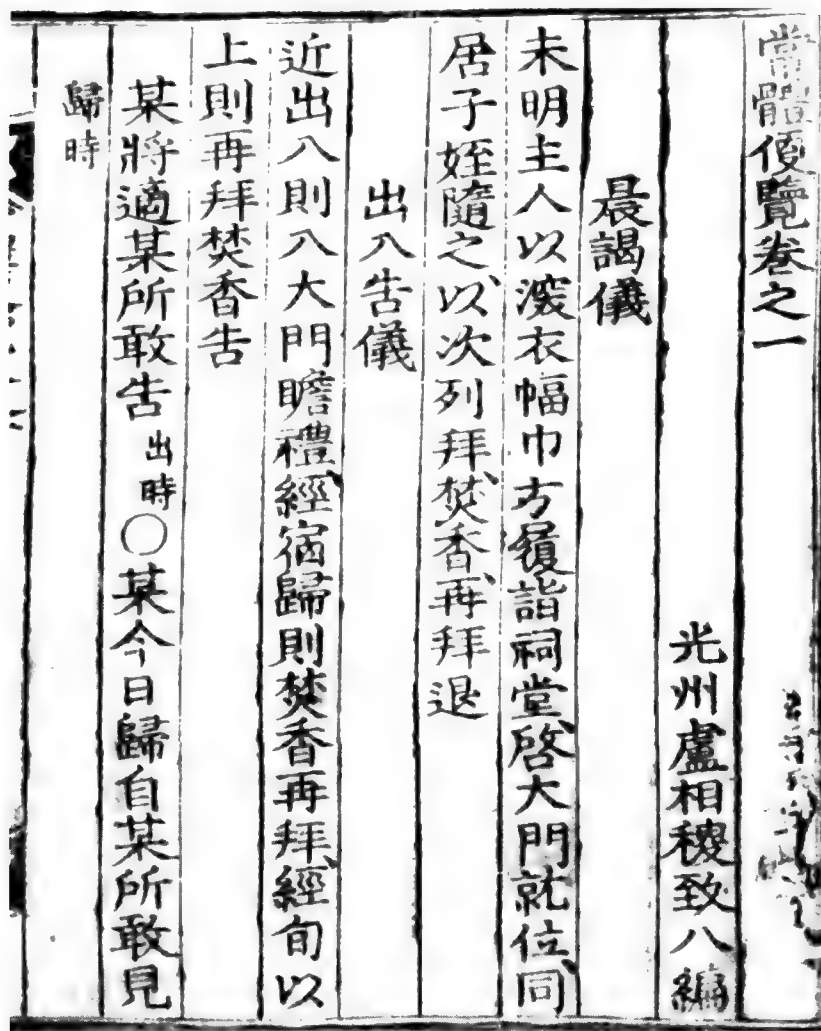 常體便覽卷之一
光州盧相稷致八編
晨謁儀
未明主人以深衣幅巾方履詣祠堂啓大門就位同
居子姪隨之以次列拜焚香再拜退
出入告儀
近出入則入大門瞻禮經宿歸則焚香再拜經旬以
上則再拜焚香告
某將適某所敢告出時○某今日歸自某所敢見
歸時